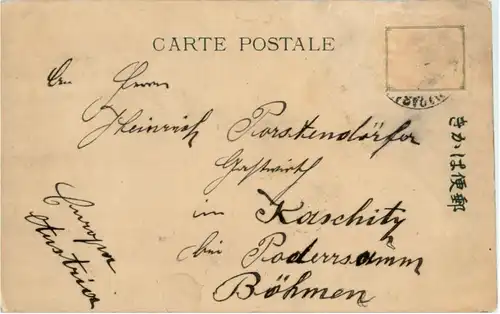 CARTE POSTALE
An Herrn
Heinrich Porstendörfer
Gastwirth
im Kaschitz
bei Podersamm
Böhmen
Europa
Austria
きかは便郵